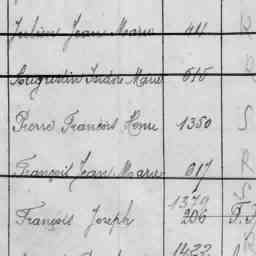 Julien Jean Marie 411 R
Augustin Isidore Marie 615 R
Pierre François Henri 1350 S
François Jean Marie 617 R
1379 S
François Joseph 206
1422